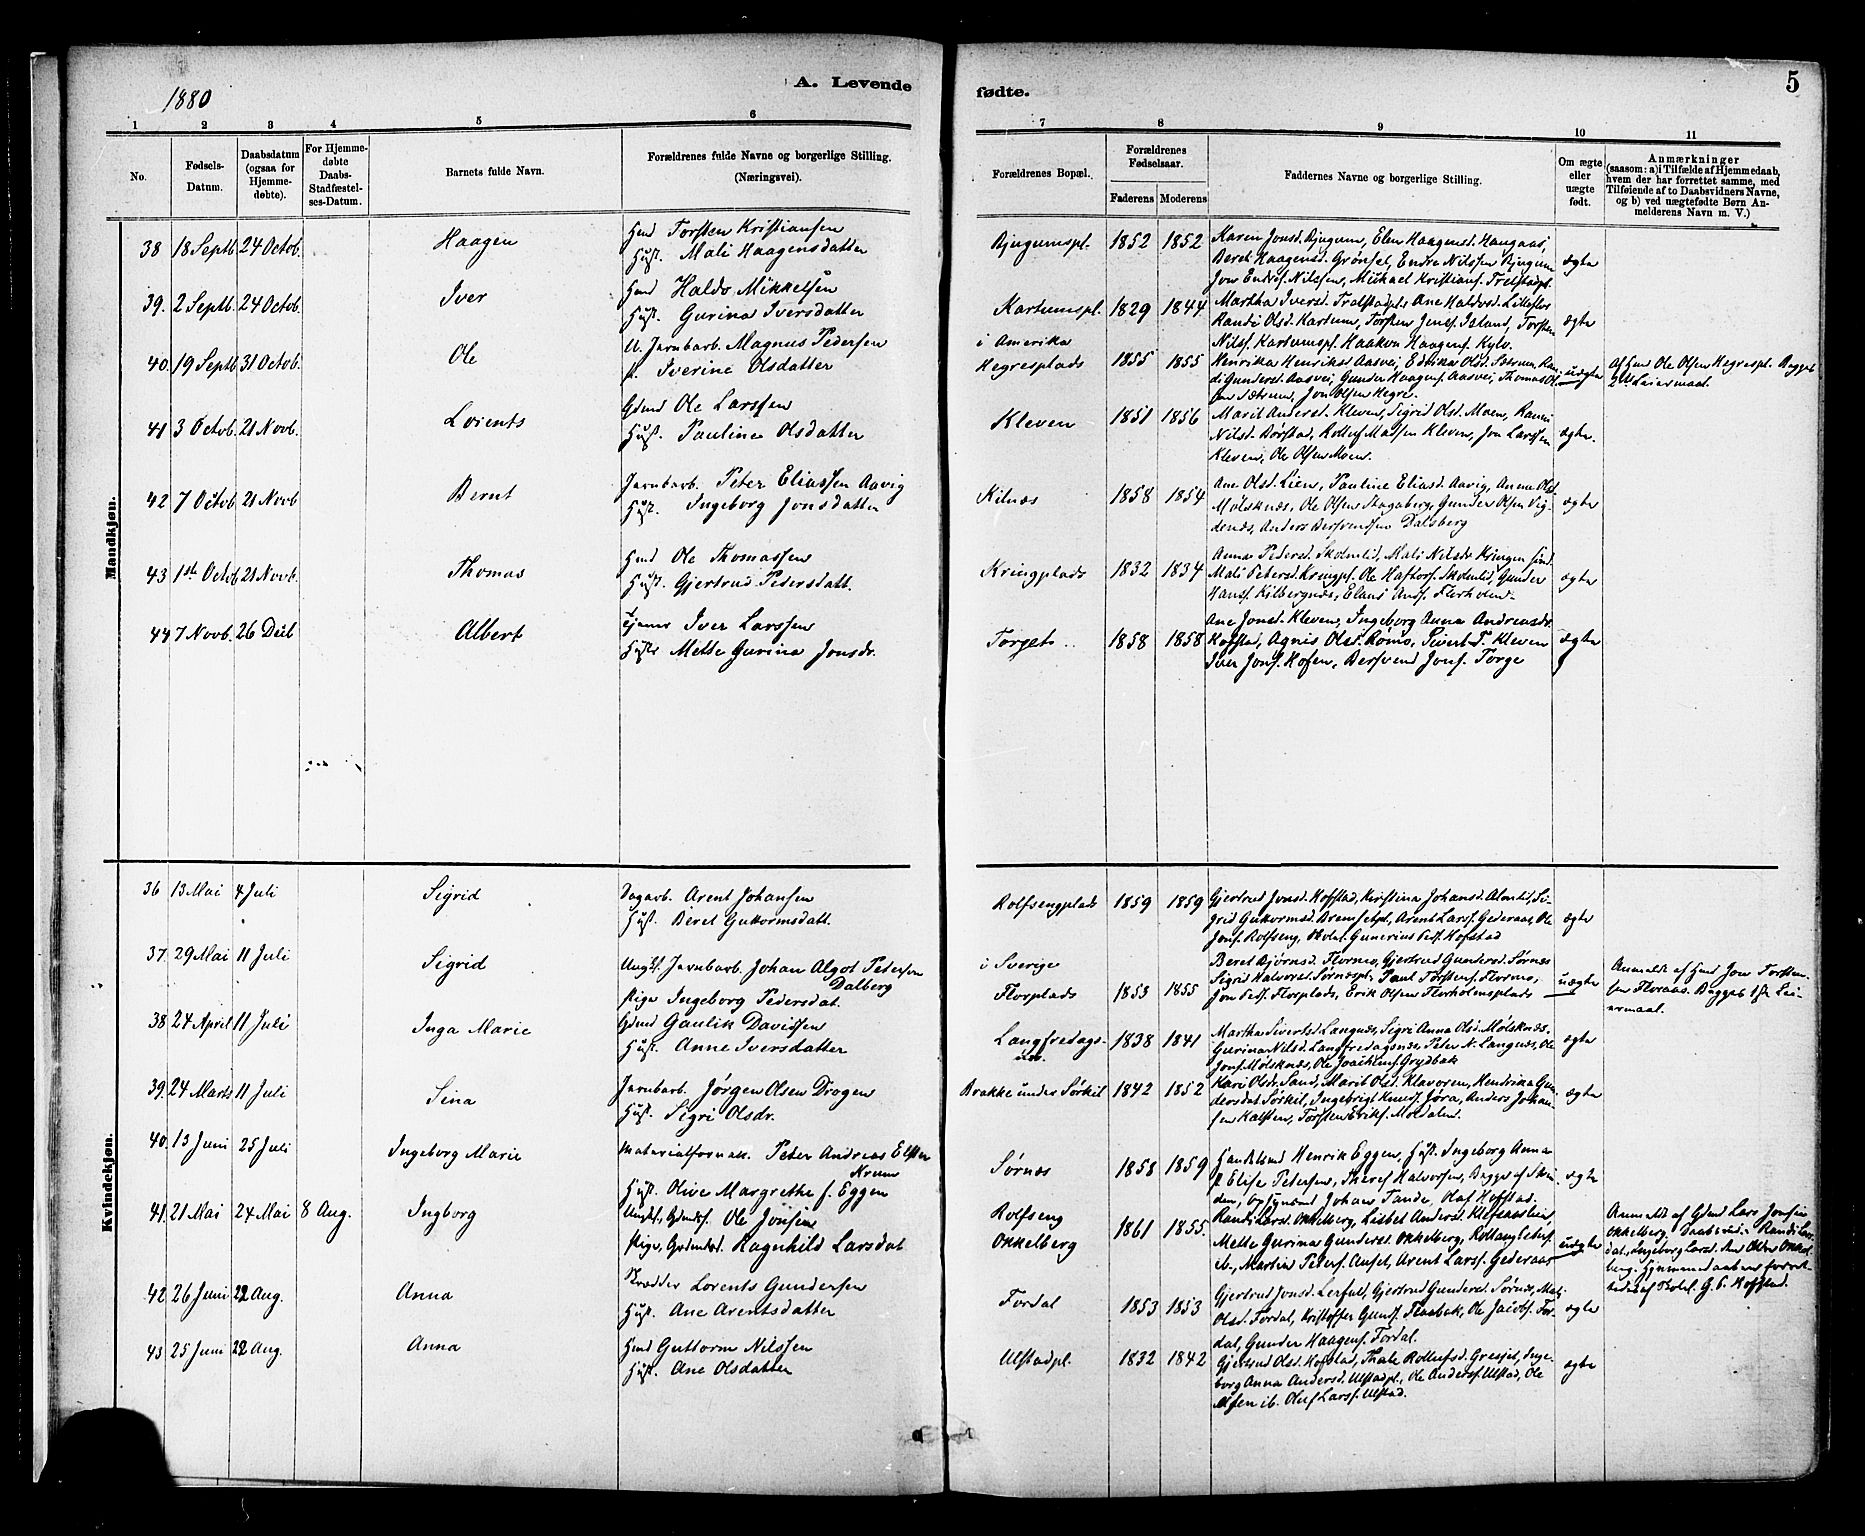 1880
A. Levende
fødte.
5
1 2 3 4 5 6 7 8 9 10 11
No.
Fødsels-
Datum.
Daabsdatum
(ogsaa for
Hjemme-
døbte).
For Hjemme-
døbte
Daabs-
Stadfæstel-
ses-Datum.
Barnets fulde Navn.
Forældrenes fulde Navne og borgerlige Stilling.
(Næringsvei).
Forældrenes Bopæl.
Forældrenes
Fødselsaar.
Faderens Moderens
Faddernes Navne og borgerlige Stilling.
Om ægte
eller
uægte
født.
Anmærkninger
(saasom: a) i Tilfælde af Hjemmedaab,
hvem der har forrettet samme, med
Tilføiende af to Daabsvidners Navne,
og b) ved uægtefødte Børn An-
melderens Navn m. V.)
Mandkjøn.
38 18 Septb 24 Octob. Haagen Hmd Torsten Kristiansen
Hust. Mali Haagensdatter
Bjugumspl. 1852 1852 Karen Jonsd. Bjugum, Elen Haagensd. Haugaas,
Beret Haagensd. Grønset, Endre Nilssen Bjugum
Jon Endres. Nilssen, Mickael Kristians. Trelstadpl.
ægte
39. 2 Septb. 24 Octob. Iver Hmd Haldo Mikkelsen
Hust. Gurina Iversdatter
Kartumspl. 1829 1844 Martha Iversd. Trælstadpl, Ane Haldosd. Lilleflor
Randi Olsd. Kartum, Torsten Jens. Island, Torsten
Nils. Kartumspl. Haakon Haagens. Kylo.
ægte
40. 19 Septb 31 Octob. Ole U. Jarnbarb. Magnus Pedersen
p. Iverine Olsdatter
i Amerika
Hegresplads 1855 1855 Henrika Henriksd. Aasvei,
di Gundersd. Aasvei, Gunder Haagens. Aasvei, Thomas Ol-
sen Sætrum, Jon Olsen Hegre.
uægte
Af Hmd Ole Olsen Hegrespl. Begges
Leiermaal.
41 3 Octob. 21 Novb. Lorents Gdmd Ole Larssen
Hust. Pauline Olsdatter
Kleven 1851 1856 Marit Andersd. Kleven, Sigrid Olsd. Moen, Randi
Nilsd. Børstad, Rolluf Madsen Kleven, Jon Larssen
Kleven, Ole Olsen Moen.
ægte.
42 7 Octob 21 Novb Bernt Jarnbarb. Peter Eliassen Aavig
Hust. Ingeborg Jonsdatter
Kilnæs 1858 1854 Ane Olsd. Lien, Pauline Eliasd. Aavig, Anna Olsd
Mølsknæs, Ole Olsen Hagaberg, Gunder Olsen Vig-
denæs, Anders Bersvendsen Dalsberg
ægte
43 1st Octob 21 Novb. Thomas Hmd Ole Thomassen
Hust. Gjertrud Pedersdatt.
Kringplads 1832 1834 Anna Pedersd. Skolmlid, Mali Nilsdr Kringen
Mali Petersd. Kringpl. Ole Haftors. Skolmlid, Gunder
Hans. Kilbergnæs, Elans Ands. Florholm
ægte
44 7 Novb. 26 Decb Albert Tjener Iver Larssen
Hustr Mette Gurina Jonsdr.
Torgets.. 1858 1858 Ane Jonsd. Kleven, Ingeborg Anna Andreasdr.
Koffstad, Agnis Olsd. Romo, Sivert T. Kleven
Iver Jons. Hofen, Bersvend Jons. Torge
ægte
Kvindekjøn.
36 13 Mai 4 Juli Sigrid Dagarb. Arent Johansen
Hust. Beret Guttormsdatt.
Rolfsengplads 1859 1859 Gjertrud Jonsd. Koffstad, Kristina Johansd. Almlid, Si-
grid Guttormsd. Bremsetpl, Arent Larss. Gederaas, Ole
Jons. Rolfseng, Gunerius Peds. Hofstad
ægte
37. 29 Mai 11 Juli Sigrid Ungkf. Jarnbarb. Johan Algot Peterson
Dalberg
Pige Ingeborg Pedersdat.
i Sverige
Florplads 1853 1855 Beret Bjørnsd. Flornes, Gjertrud Gundersd. Sørnæs
Sigrid Halvorsd. Sørnæspl, Paul Torstens. Flornes,
Jon Peds. Florsplads, Erik Olsen Florholmsplads
uægte
Anmeldt af Hmd Jon Torsten-
sen Floraas. Begges 1st Lei-
ermaal.
38 24 April 11 Juli Inga Marie Gdmd Gaulik Davidsen
Hust. Anne Iversdatter
Langfredags-
næs 1838 1841 Martha Sivertsd. Langnæs, Sigri Anna Olsd Mølsknæs.
Gurina Nilsd. Langfredagsnæs, Peter N. Langnæs, Ole
Jons. Mølsknæs, Ole Joachims. Grydbak
ægte
39. 24 Marts 11 Juli Sina Jarnbarb. Jørgen Olsen Drogen
Hust. Sigri Olsdr.
Brakke under Sørkil 1842 1852 Kari Olsdr. Sand, Marit Olsd. Klavoren, Hendrika Gun-
dersdat Sørkil, Ingebrigt Knuds. Jøra, Anders Johan-
sen Kalsten, Torsten Eriks. Moldalen.
ægte
40. 13 Juni 25 Juli Ingeborg Marie Materialforvalt. Peter Andreas Elster
Hust. Olive Margrethe f. Eggen
Sørnæs 1858 1859 Handelsmd Henrik Eggen, Hust. Ingeborg Anna
p. Elise Petersen, Halvorsen, Bygges af Ski-
den, Opsynsmd Johan Tande, Olaf Hofstad.
ægte
41 21 Mai 24 Mai 8 Aug. Ingborg Ungkf., Gdmds. Ole Jonsen
Pige, Gdmdsd. Ragnhild Larsdat
Rolfseng
Okkelberg 1861 1855. Randi Larsd. Okkelberg, Lisbet Andersd. Klefsaaslien,
Mette Gurina Gundersd. Okkelberg,
ib., Martin Peters. Aufset, Arent Larss. Gederaas
uægte
Anmeldt af Gdmd Lars Jonsen
Okkelberg. Daabsvid. Randi Lars-
dat, Ingeborg Larsd.
berg. Hjemmedaaben forret-
tedes af G. P. Hoffstad.
42 26 Juni 22 Aug. Anna Skrædder Lorents Gundersen
Hust. Ane Arentsdatter
Fordal 1853 1853 Gjertrud Jonsd. Lerfald, Gjertrud Gundersd. Sørnæs, Mali
Olsd. Fordal, Kristoffer Gunds. Flaabak, Ole Jacobs. For-
dal, Gunder Haagens. Fordal.
ægte
43 25 Juni 22 Aug. Anna Hmd Guttorm Nilssen
Hust. Ane Olsdatter
Ulstadpl. 1832 1842 Gjertrud Olsd. Hofstad, Thale Rollufsd. Gresset, Inge-
borg Anna Andersd. Ulstadpl., Ole Anderss. Ulstad, Ole
Olsen ib. Oluf Larss. Ulstad.
ægte